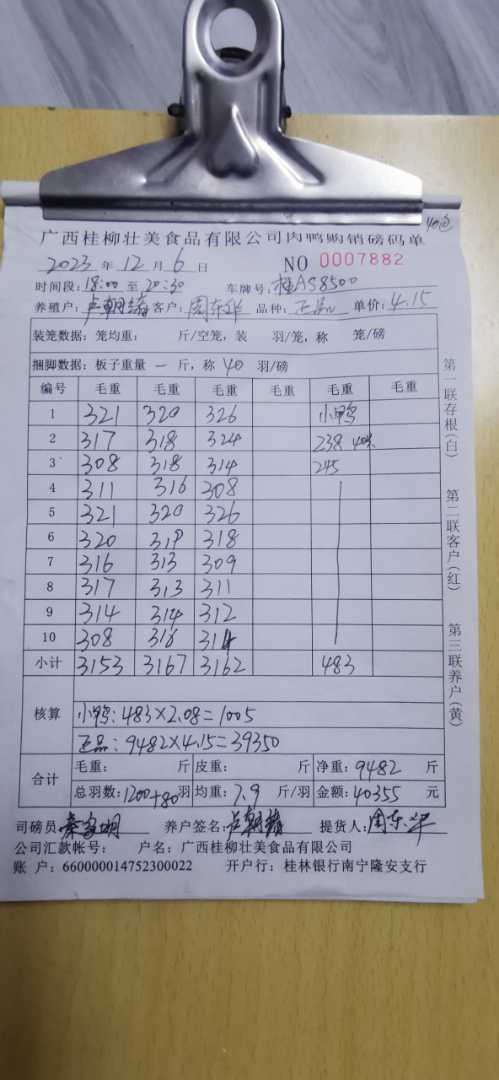 广西桂柳壮美食品有限公司肉鸭购销磅码单
2023 年 12 月 6 日 NO 0007882
时间段：18:00 至 20:30 车牌号：桂AS8500
养殖户：卢朝 客户：周东华 品种：正品 单价：4.15
装笼数据：笼均重： 斤/空笼，装 羽/笼，称 笼/磅
捆脚数据：板子重量 一 斤，称 40 羽/磅
编号 毛重 毛重 毛重 毛重 毛重 毛重
1 321 320 326 小鸭
2 317 318 324 238
3 308 318 314 245
4 311 316 308
5 321 320 326
6 320 318 318
7 316 313 309
8 317 313 311
9 314 314 312
10 308 318 314
小计 3153 3167 3162 483
核算
小鸭：483×2.08=1005
正品：9482×4.15=39350
合计
毛重： 斤 皮重： 斤 净重：9482 斤
总羽数：1200+80 羽 均重：7.9 斤/羽 金额：40355 元
司磅员 养户签名：卢朝 提货人：周东华
公司汇款帐号： 户名：广西桂柳壮美食品有限公司
账 户：660000014752300022 开户行：桂林银行南宁隆安支行
第一联存根(白)
第二联客户(红)
第三联养户(黄)